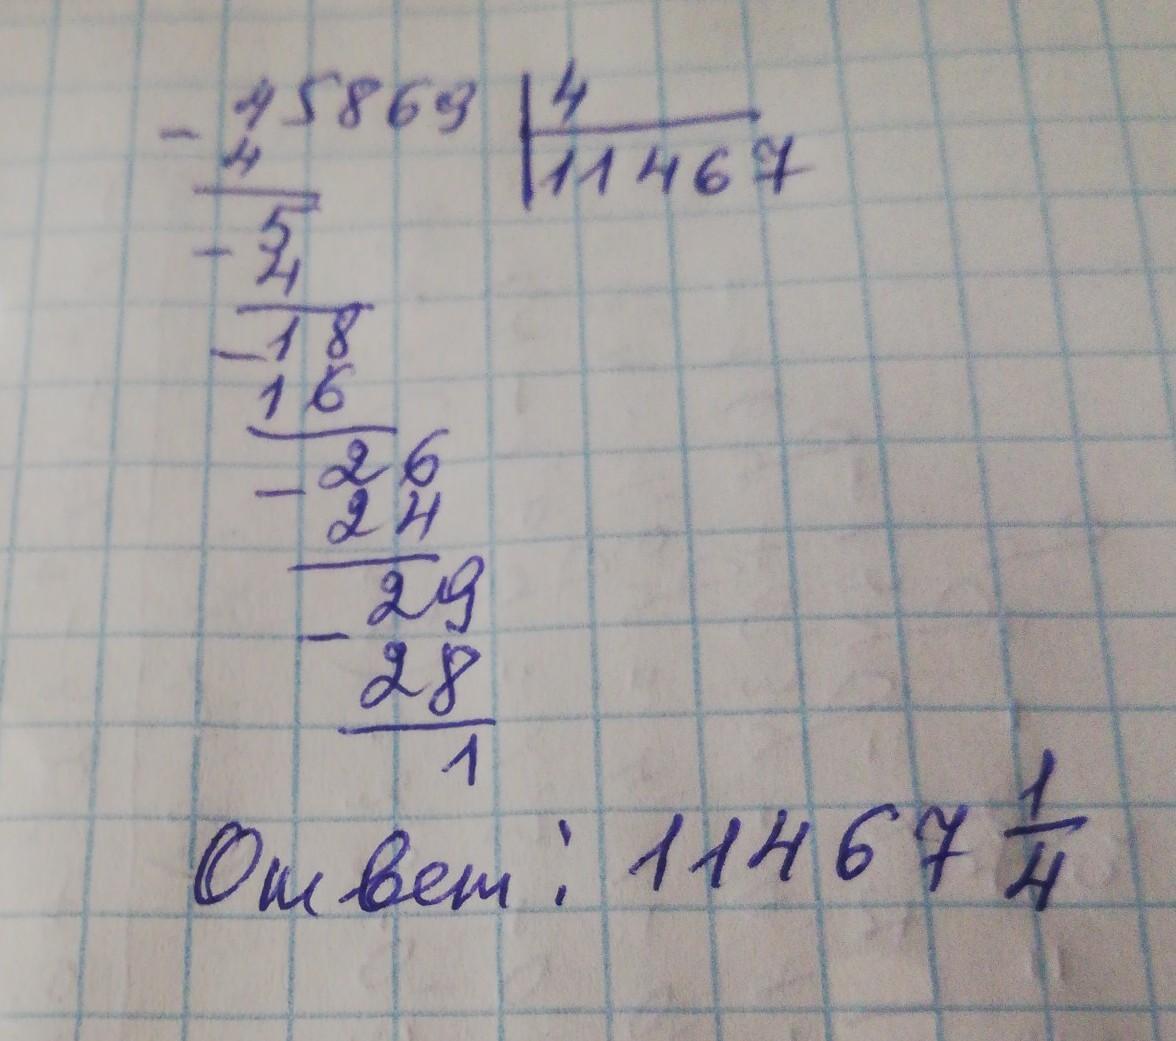 - 45869 | 4
4 | 11467
- 5
4
- 18
16
- 26
24
- 29
28
1
Ответ: 11467 1/4